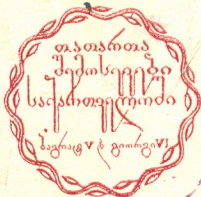 თათართა
შემოსევები
საქართველოში
ბაგრატ V ს გიორგი VI